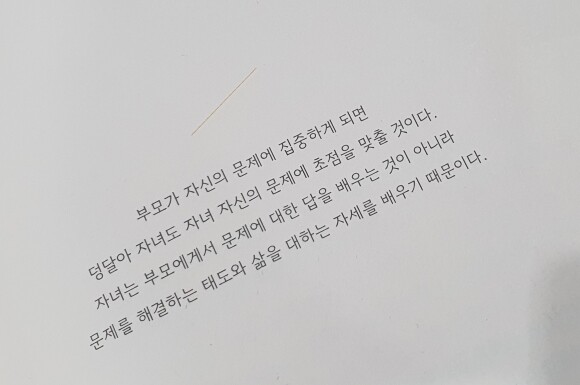 부모가 자신의 문제에 집중하게 되면
덩달아 자녀도 자녀 자신의 문제에 초점을 맞출 것이다.
자녀는 부모에게서 문제에 대한 답을 배우는 것이 아니라
문제를 해결하는 태도와 삶을 대하는 자세를 배우기 때문이다.